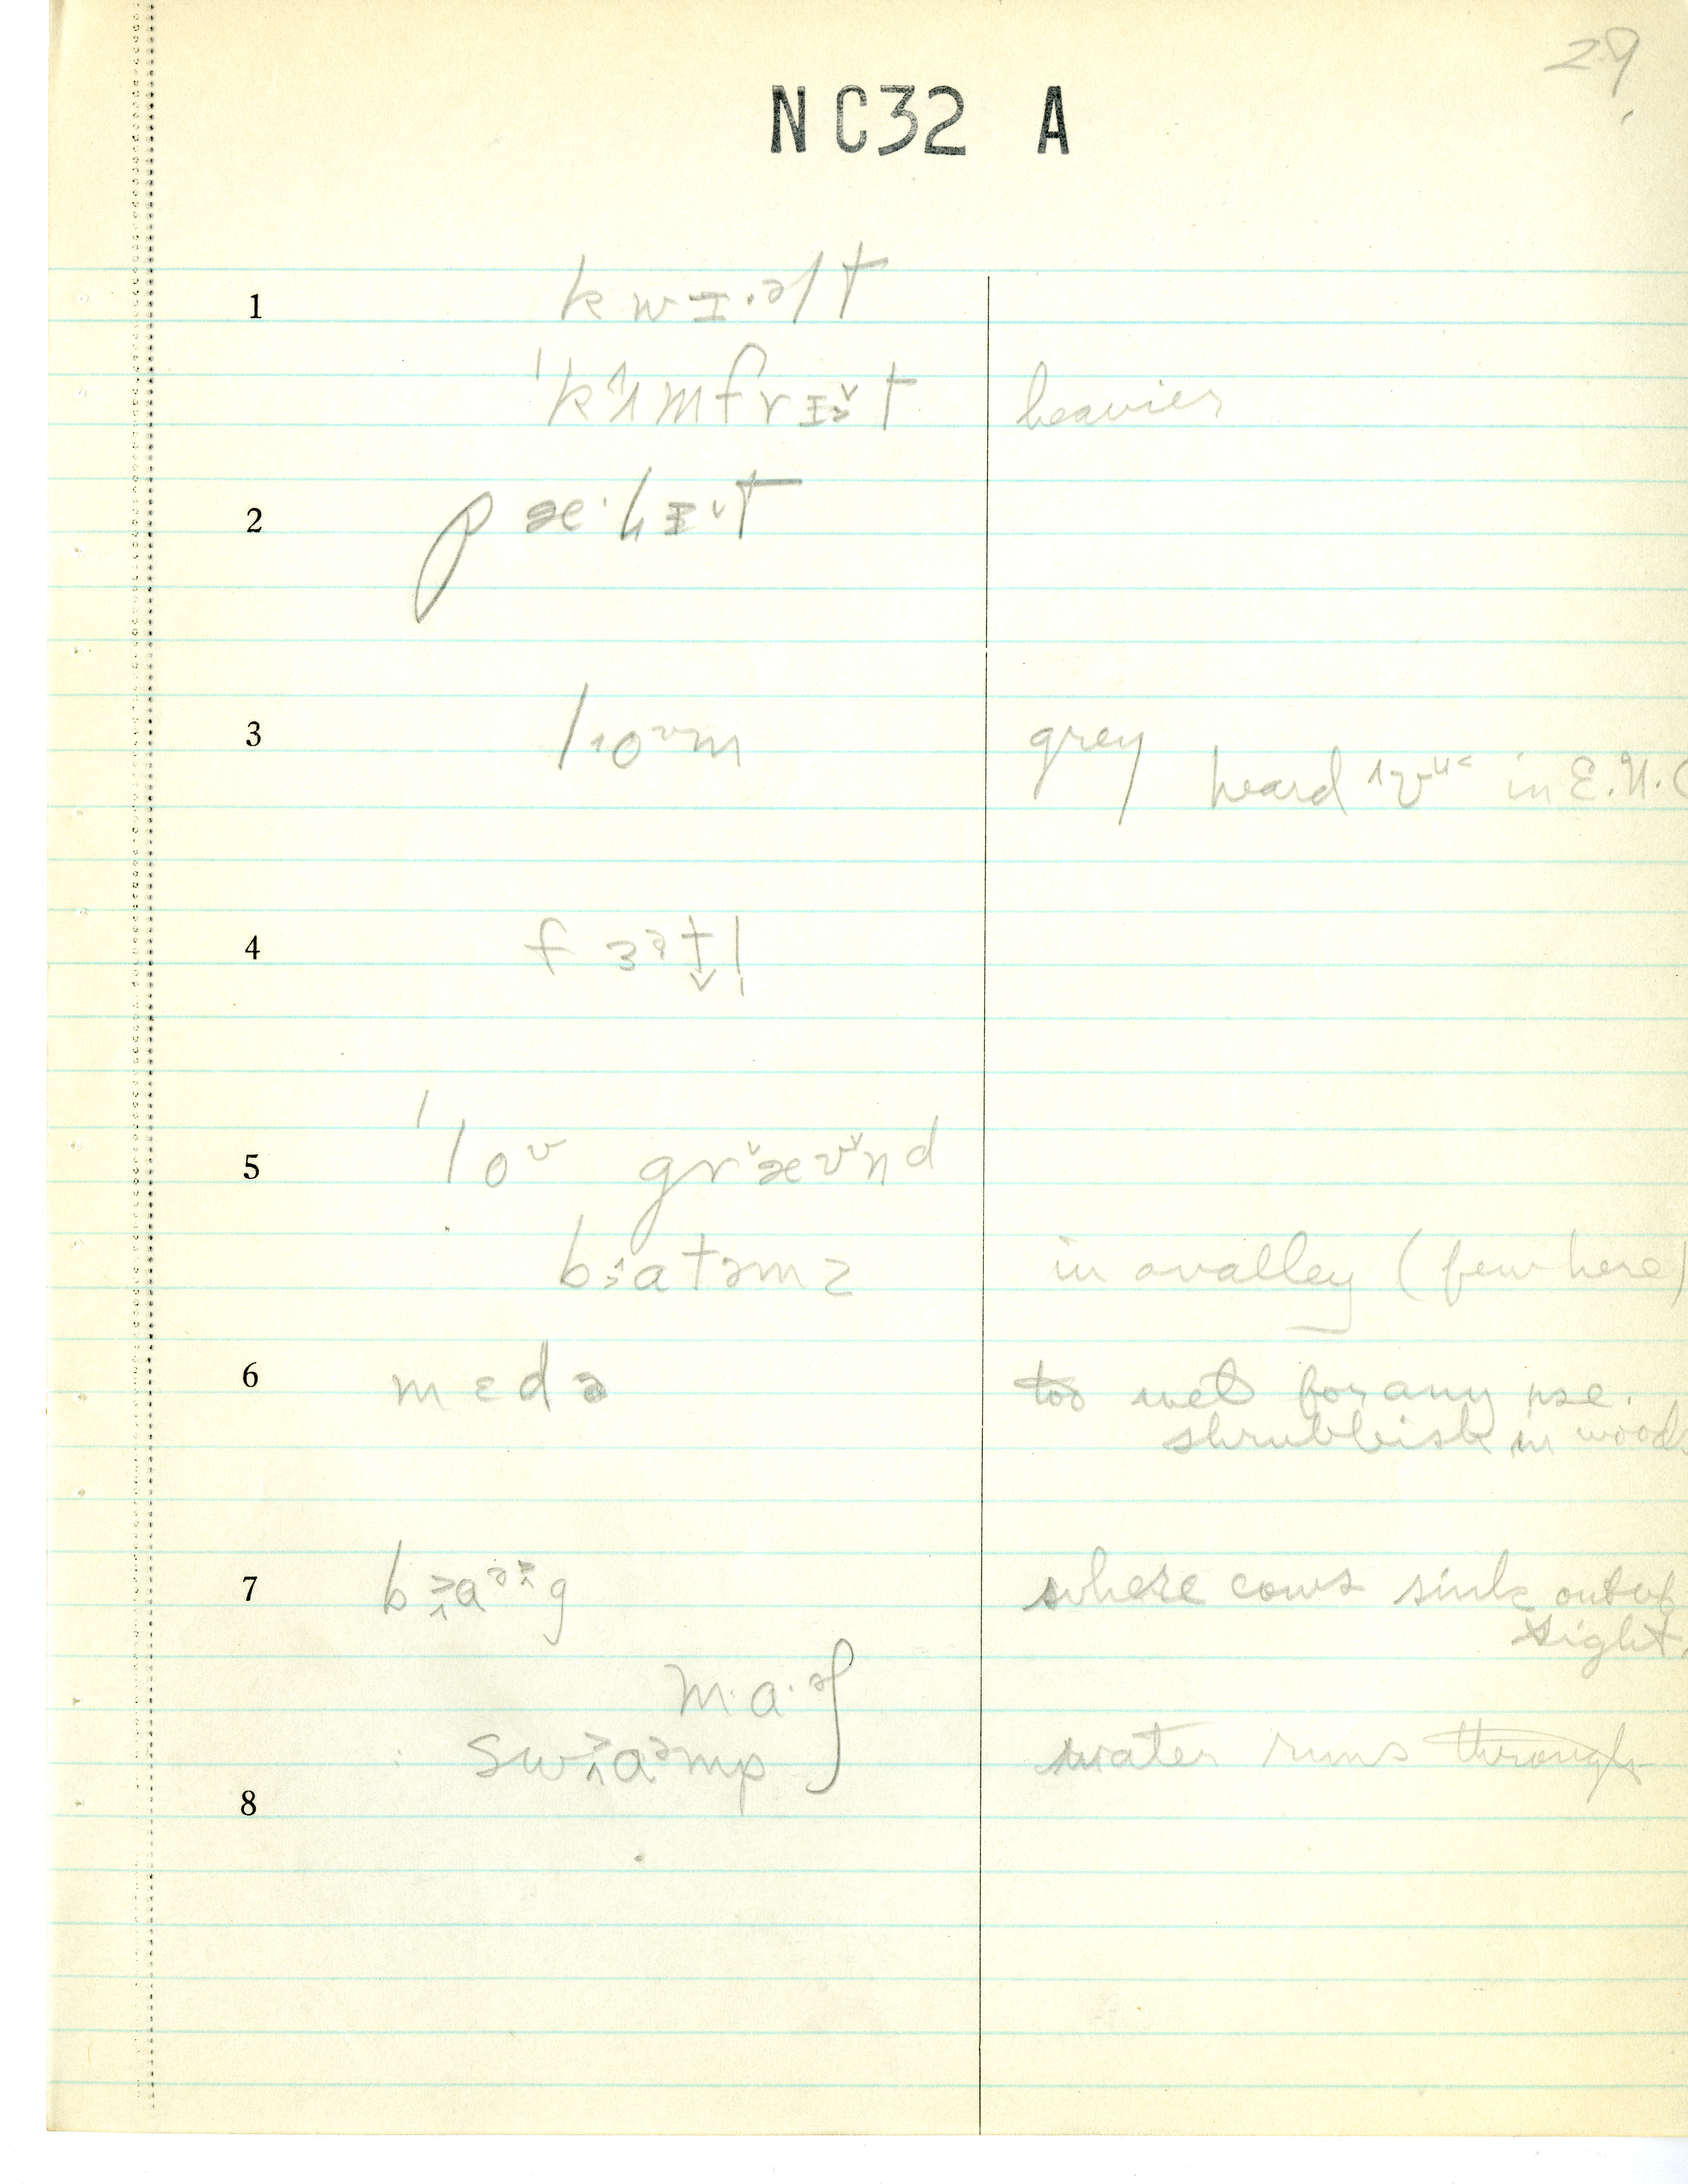 29
NC32 A
1 kwɪ·əlt
ˈkʌmfrɪə̌t heavier
2 pæ·lɪ·t
3 loᶷm grey
heard in E.N.C
4 fɜətl̩
5 ˈloᶷ græʊnd
batəmz in a valley (few here)
6 mɛdə too wet for any use.
shrubbish in woods
7 bag where cows sink out of
sight.
ma·əʃ
swaəmp water runs through
8